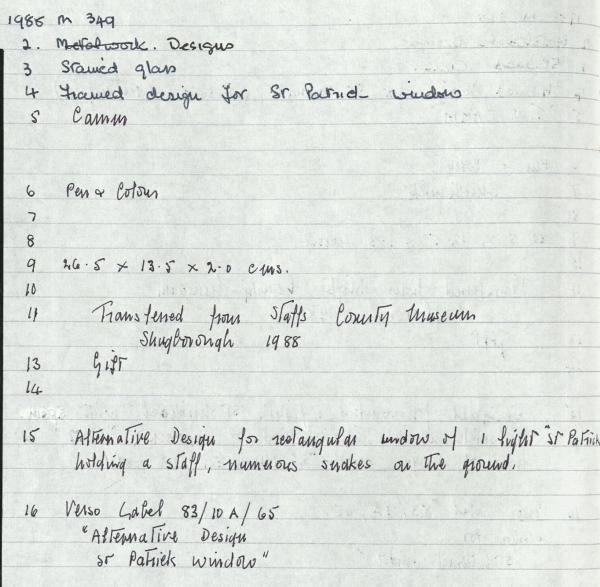 1985 M 349
2. Metalwork. Designs
3 Stained glass
4 Framed design for St Patrick window
5 Camm
6 Pen & Colour
7
8
9 26.5 × 13.5 × 2.0 cms.
10
11 Transferred from Staffs County Museum
Shugborough 1988
13 Gift
14
15 Alternative Design for rectangular window of 1 light "St Patrick
holding a staff, numerous snakes on the ground.
16 Verso Label 83/10 A/65
"Alternative Design
St Patrick window"